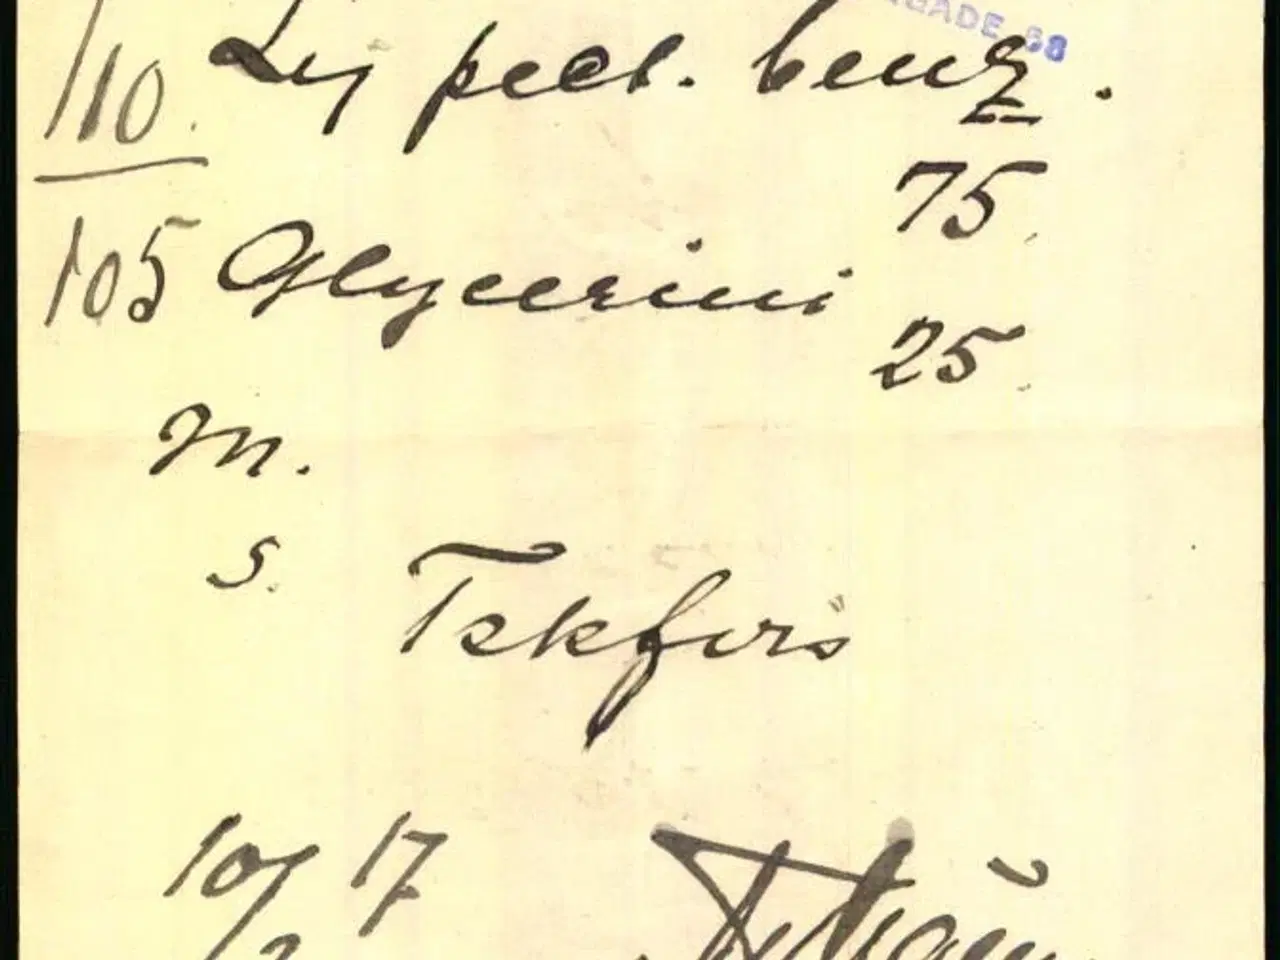 GADE 68
/10. Liq pect. benz.
75.
105 Glycerini
25.
M.
S. Tekfvis
10/2 17